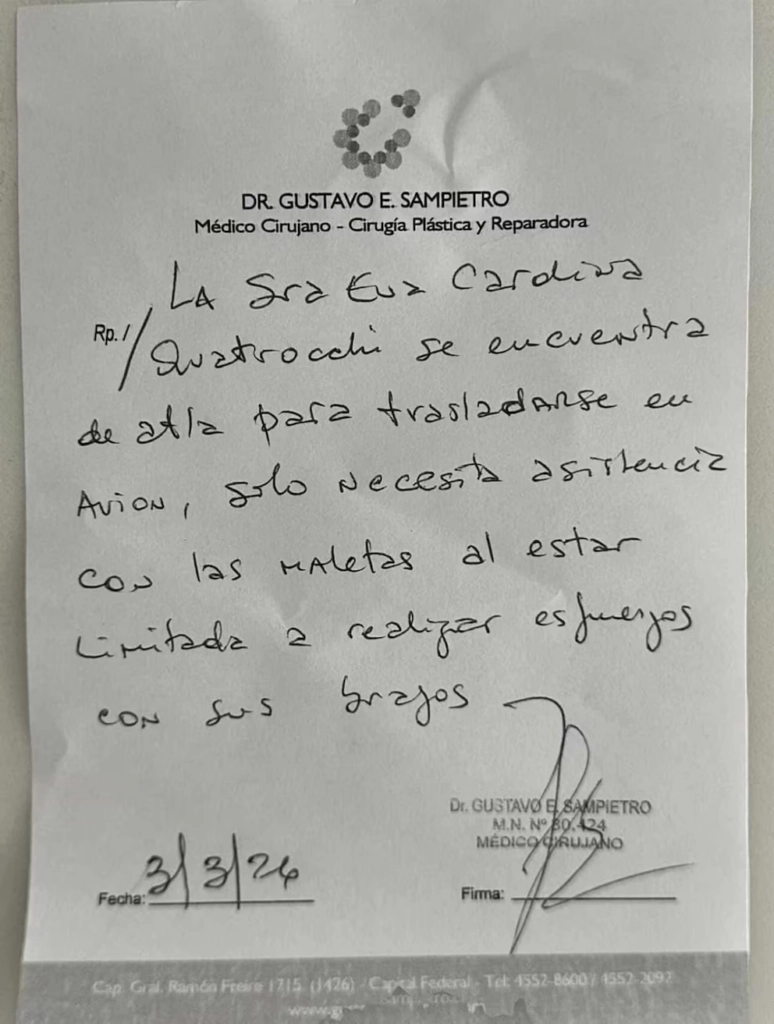 DR. GUSTAVO E. SAMPIETRO
Médico Cirujano - Cirugía Plástica y Reparadora
LA Sra Eva Cardiva
Rp./ Quatrocchi se encuentra
de alta para trasladarse en
Avion, solo necesita asistencia
con las maletas al estar
limitada a realizar esfuerzos
con sus brazos
Dr. GUSTAVO E. SAMPIETRO
M.N. Nº 80.424
MÉDICO CIRUJANO
Fecha: 3/3/26
Firma:
Cap. Gral. Ramón Freire 1715 (1426) / Capital Federal - Tel: 4552-8600 / 4552-2092